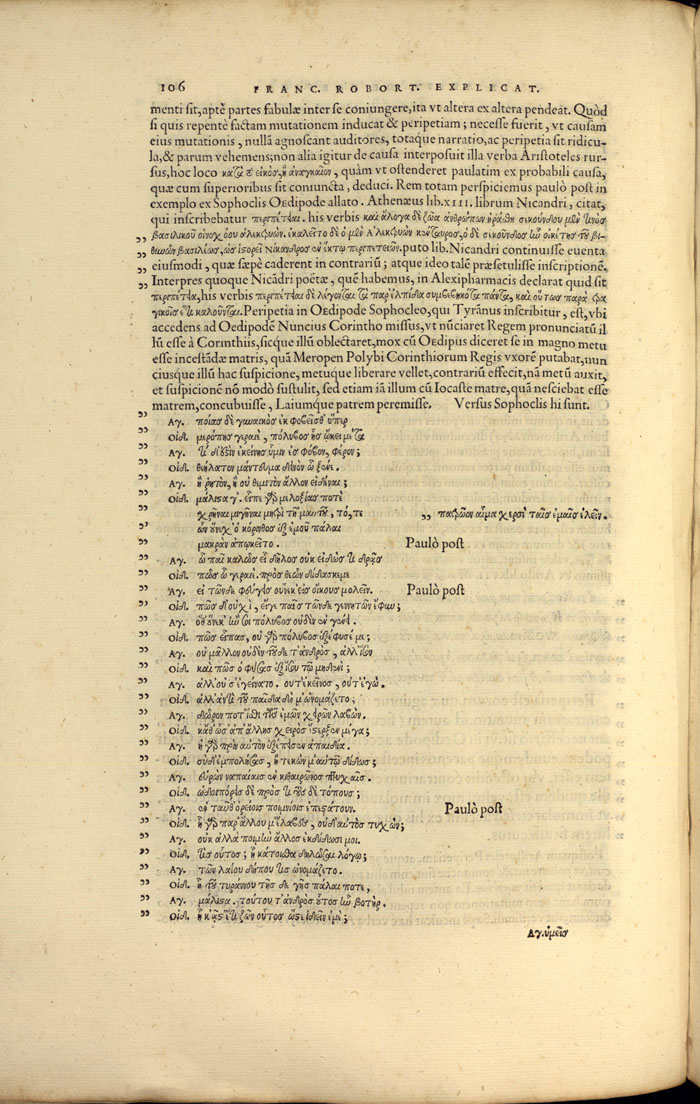 106 FRANC. ROBORT. EXPLICAT.
menti sit, aptè partes fabulæ inter se coniungere, ita vt altera ex altera pendeat. Quòd
si quis repentè factam mutationem inducat & peripetiam; necesse fuerit, vt causam
eius mutationis, nullā agnoscant auditores, totaque narratio, ac peripetia sit ridicu-
la, & parum vehemens; non alia igitur de causa interposuit illa verba Aristoteles rur-
sus, hoc loco κατὰ τὸ εἰκὸς, ἢ ἀναγκαῖον, quàm vt ostenderet paulatim ex probabili causa,
quæ cum superioribus sit coniuncta, deduci. Rem totam perspiciemus paulò post in
exemplo ex Sophoclis Oedipode allato. Athenæus lib. XIII. librum Nicandri, citat,
qui inscribebatur περιπέτειαι. his verbis καὶ ἄλογα δὲ ζῶα ἀνθρώπων ἠράσθη σικούνδου μὲν τινὸς
βασιλικοῦ οἰνοχόου ἀλεκτρυών. ἐκαλεῖτο δὲ ὁ μὲν ἀλεκτρυὼν κένταυρος, ὁ δὲ σικοῦνδος ἦν οἰκέτης τοῦ βι-
„ θυνῶν βασιλέως, ὡς ἱστορεῖ Νίκανδρος ἐν ἕκτῳ περιπετειῶν. puto lib. Nicandri continuisse euenta
„ eiusmodi, quæ sæpè caderent in contrariū; atque ideo talē præsetulisse inscriptionē.
„ Interpres quoque Nicādri poëtæ, quē habemus, in Alexipharmacis declarat quid sit
„ περιπέτεια, his verbis περιπέτειαι δὲ λέγονται τὰ παρ' ἐλπίδα συμβεβηκότα πάντα, καὶ οὕτως παρὰ τρα
γικοῖς ἔτι καλοῦνται. Peripetia in Oedipode Sophocleo, qui Tyrānus inscribitur, est, vbi
accedens ad Oedipodē Nuncius Corintho missus, vt nūciaret Regem pronunciatū il
lū esse à Corinthiis, sicque illū oblectaret, mox cū Oedipus diceret se in magno metu
esse incestādæ matris, quā Meropen Polybi Corinthiorum Regis vxorē putabat, nun
ciusque illū hac suspicione, metuque liberare vellet, contrariū effecit, nā metū auxit,
et suspicionē nō modò sustulit, sed etiam iā illum cū Iocaste matre, quā nesciebat esse
matrem, concubuisse, Laiumque patrem peremisse. Versus Sophoclis hi sunt.
„ Αγ. ποίας δὲ γυναικὸς ἐκφοβεῖσθ' ὕπερ
„ Οιδ. μερόπης γεραιὲ, πόλυβος ἧς ᾤκει μέτα
„ Αγ. τί δ' ἔστ' ἐκείνης ὑμῖν ἐς φόβον, φέρον;
„ Οιδ. θεήλατον μάντευμα δεινὸν ὦ ξένε.
„ Αγ. ἢ ῥητὸν, ἢ οὐ θεμιτὸν ἄλλον εἰδέναι;
„ Οιδ. μάλιστα γ'. εἶπε γάρ με λοξίας ποτὲ
„ χρῆναι μιγῆναι μητρὶ τῇ μαυτοῦ, τό, τε „ πατρῶον αἷμα χερσὶ ταῖς ἐμαῖς ἑλεῖν.
„ ὧν οὕνεχ' ὁ κόρινθος ἐξ ἐμοῦ πάλαι
„ μακρὰν ἀπῳκεῖτο. Paulò post
„ Αγ. ὦ παῖ καλῶς εἶ δῆλος οὐκ εἰδὼς τί δρᾷς
„ Οιδ. πῶς ὦ γεραιέ. πρὸς θεῶν δίδασκέ με
„ Αγ. εἰ τῶνδε φεύγεις οὕνεκ' εἰς οἴκους μολεῖν. Paulò post
„ Οιδ. πῶς δ' οὐχὶ, εἴγε παῖς τῶνδε γεννητῶν ἔφυν;
„ Αγ. ὁθούνεκ' ἦν σοι πόλυβος οὐδὲν ἐν γένει.
„ Οιδ. πῶς εἶπας, οὐ γὰρ πόλυβος ἐξέφυσέ με;
„ Αγ. οὐ μᾶλλον οὐδὲν τοῦδε τ' ἀνδρὸς, ἀλλ' ἴσον
„ Οιδ. καὶ πῶς ὁ φύσας ἐξ ἴσου τῷ μηδενί;
„ Αγ. ἀλλ' οὔ σ' ἐγείνατο. οὔτ' ἐκεῖνος, οὔτ' ἐγώ.
„ Οιδ. ἀλλ' ἀντὶ τοῦ παῖδα δή μ' ὠνομάζετο;
„ Αγ. δῶρον ποτ' ἴσθι τῆς ἐμῶν χειρῶν λαβών.
„ Οιδ. κᾆθ' ὡς ἀπ' ἄλλης χειρὸς ἔστερξεν μέγα;
„ Αγ. ἡ γὰρ πρὶν αὐτὸν ἐξέπεισεν ἀπαιδία.
„ Οιδ. σὺ δ' ἐμπολήσας, ἢ τεκών μ' αὐτῷ δίδως;
„ Αγ. εὑρὼν ναπαίαις ἐν κιθαιρῶνος πτυχαῖς.
„ Οιδ. ὡδοιπόρεις δὲ πρὸς τί τούσδε τόπους;
„ Αγ. ἐν ταῦθ' ὀρείοις ποιμνίοις ἐπεστάτουν. Paulò post
„ Οιδ. ἦ γὰρ παρ' ἄλλου μ' ἔλαβες, οὐδ' αὐτὸς τυχών;
„ Αγ. οὐκ ἀλλὰ ποιμὴν ἄλλος ἐκδίδωσί μοι.
„ Οιδ. τίς οὗτος; ἢ κάτοισθα δηλῶσαι λόγῳ;
„ Αγ. τῶν λαΐου δήπου τὶς ὠνομάζετο.
„ Οιδ. ἦ τοῦ τυράννου τῆς δε γῆς πάλαι ποτε,
„ Αγ. μάλιστα. τούτου τ' ἀνδρὸς οὗτος ἦν βοτήρ.
„ Οιδ. ἦ κᾆστ' ἔτι ζῶν οὗτος ὥστ' ἰδεῖν ἐμέ;
Αγ. ὑμεῖς